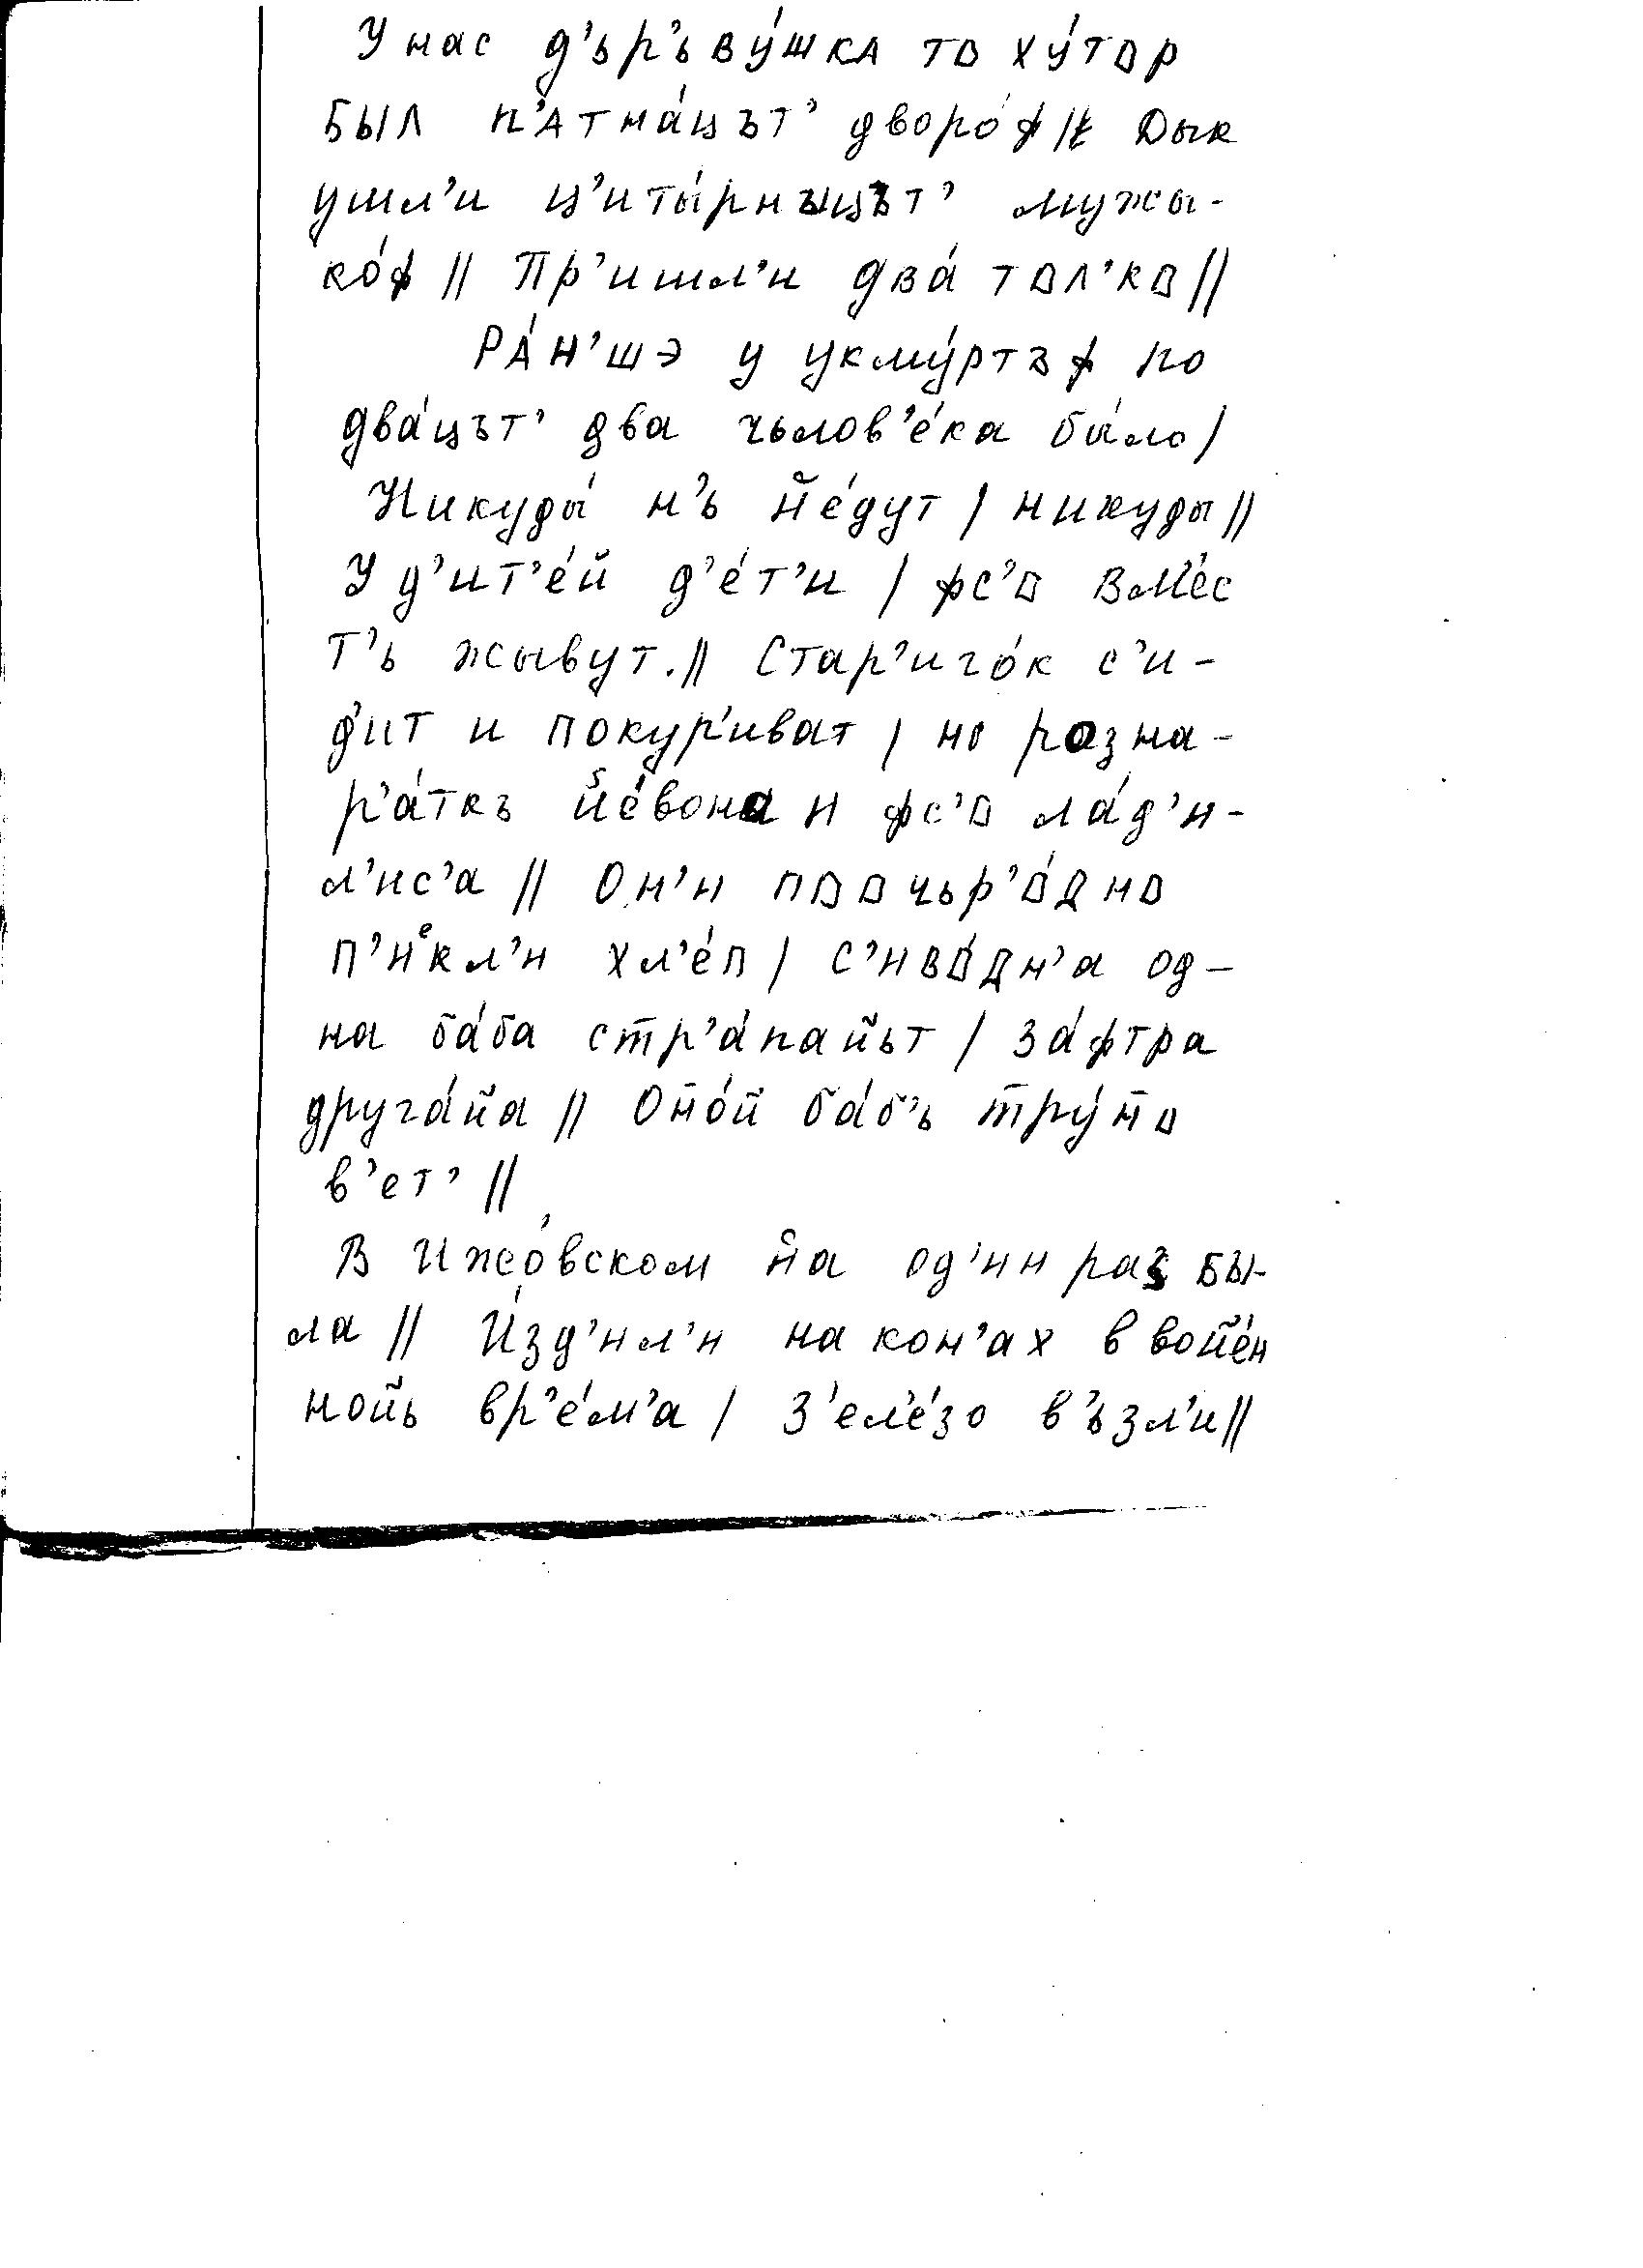 У нас д’ър’ъву́шка то ху́тор
был п’атна́цът’ дворо́ф // Дык
ушл’и ц’иты́рнъцът’ мужы-
ко́ф // Пр’ишл’и два́ тол’ко //
Ра́н’шэ у укму́ртъф по
два́цът’ два чьлов’е́ка бы́ло /
Никуды́ н’ъ йе́дут / никуды //
У д’ит’е́й д’е́т’и / фс’о вм’е́с
т’ъ жывут. // Стар’иго́к с’и-
д’ит и покур’иват / но розна-
р’а́ткъ йе́вона и фс’о ла́д’и-
л’ис’а // Он’и поочьр’о́дно
п’иекл’и хл’е́п / с’иво́дн’а од-
на ба́ба стр’а́пайьт / за́фтра
друга́йа // Оно́й ба́б’ъ тру́но
в’ет’ //
В Ижо́вском йа од’ин раз бы-
ла // И́зд’ил’и на кон’ах в войе́н
нойь вр’е́м’а / З’еле́зо в’ъзл’и //